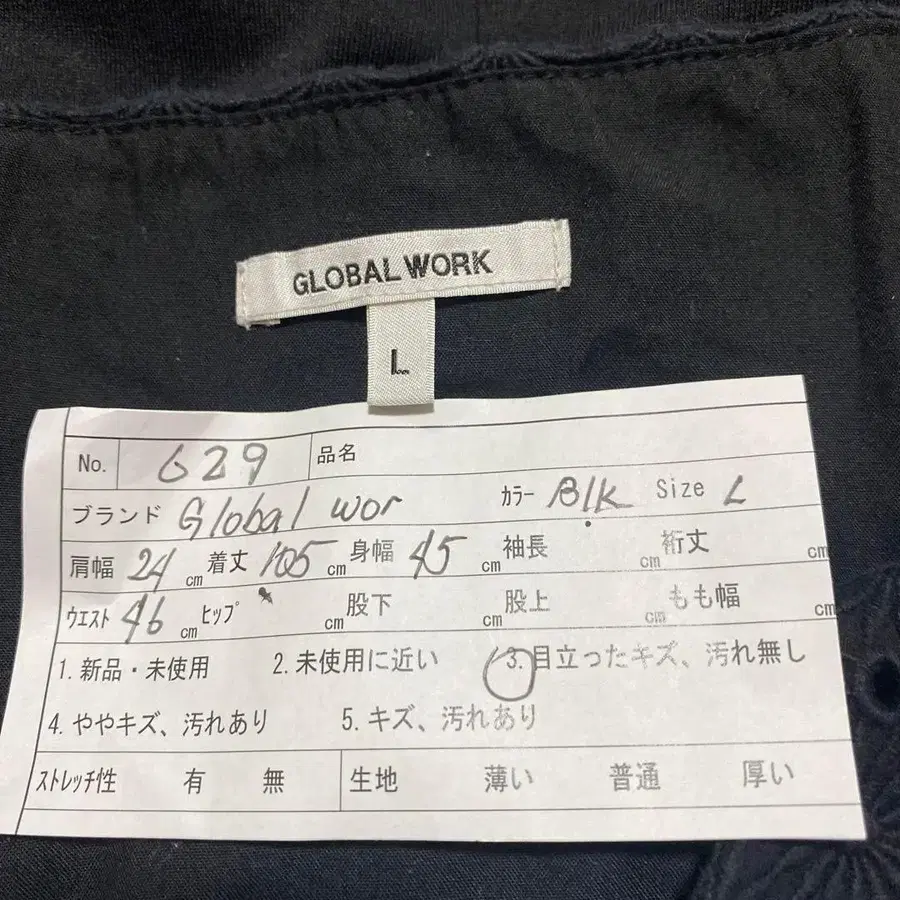 GLOBAL WORK
L
No. 629 品名
ブランド Global wor カラー Blk Size L
肩幅 24 cm 着丈 105 cm 身幅 45 cm 袖長 cm 裄丈 cm
ウエスト 46 cm ヒップ cm 股下 cm 股上 cm もも幅 cm
1. 新品・未使用 2. 未使用に近い 3. 目立ったキズ、汚れ無し
4. ややキズ、汚れあり 5. キズ、汚れあり
ストレッチ性 有 無 生地 薄い 普通 厚い